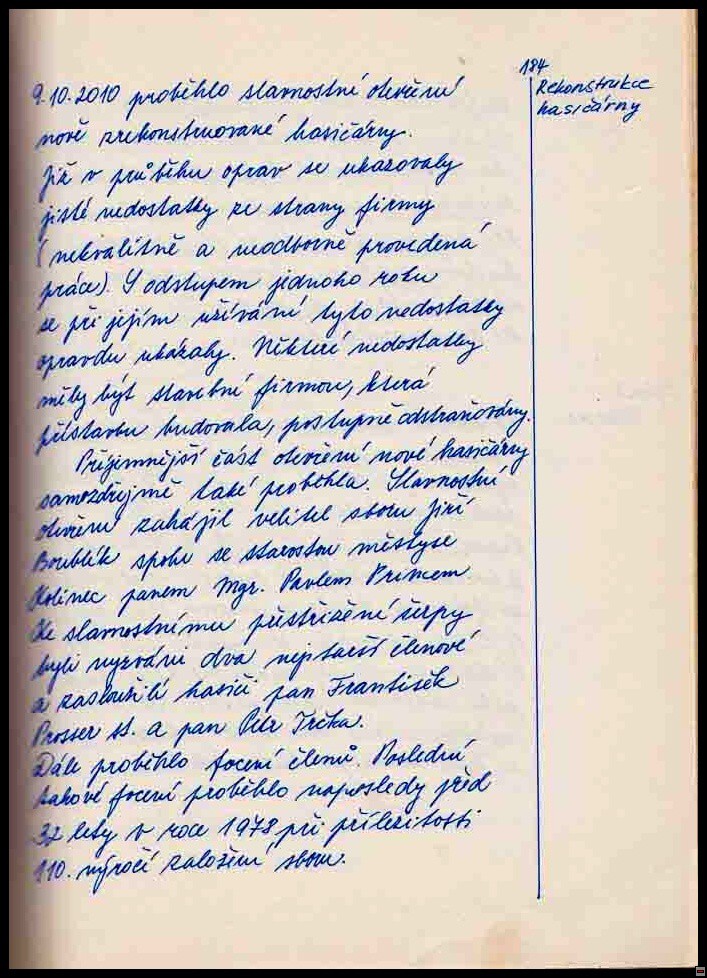 184
Rekonstrukce
hasičárny
9.10.2010 proběhlo slavnostní otevření
nově zrekonstruované hasičárny.
Již v průběhu oprav se ukazovaly
jisté nedostatky ze strany firmy
(nekvalitně a neodborně provedená
práce). S odstupem jednoho roku
se při jejím užívání tyto nedostatky
opravdu ukázaly. Některé nedostatky
měly být stavební firmou, která
přístavbu budovala, postupně odstraňovány.
Příjemnější část otevření nové hasičárny
samozdřejmě také proběhla. Slavnostní
otevření zahájil velitel sboru Jiří
Boublík spolu se starostou městyse
Kolinec panem Mgr. Pavlem Princem.
Ke slavnostnímu přestřižení šerpy
byli vyzváni dva nejstarší členové
a zasloužilí hasiči pan František
Prosser st. a pan Petr Trčka.
Dále proběhlo focení členů. Poslední
takové focení proběhlo naposledy před
32 lety v roce 1978 při příležitosti
110. výročí založení sboru.